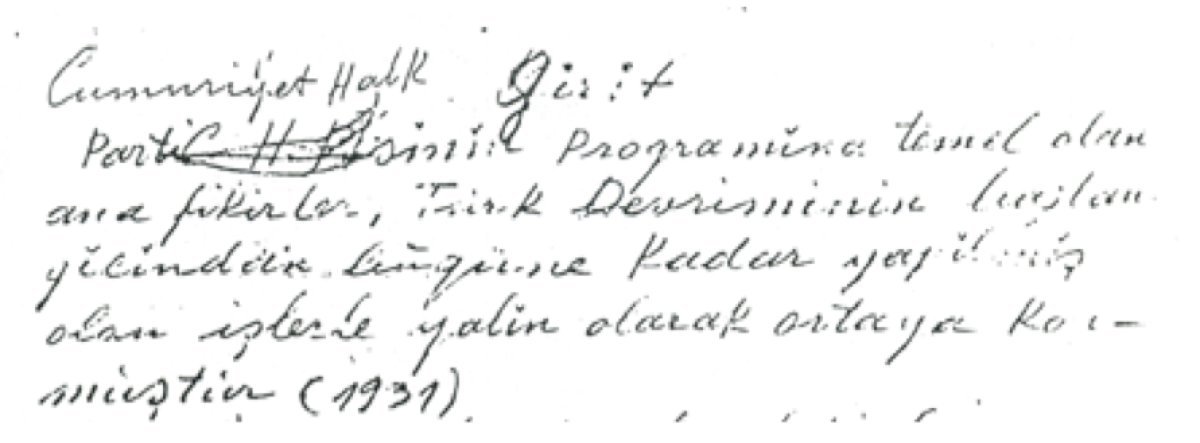 Cumuriyet Halk Girit
Partisinin Programına temel olan
ana fikirler, Türk Devriminin başlan
gıcından bugüne kadar yapılmış
olan işlerle yalın olarak ortaya kon-
muştur (1931)